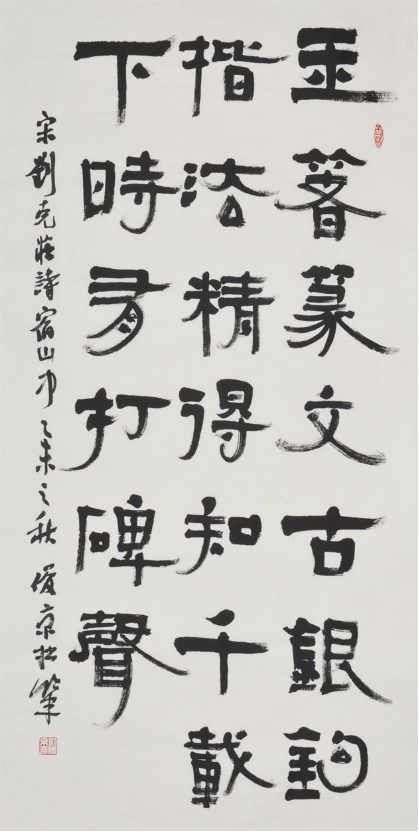 玉箸篆文古銀鉤
楷法精得知千載
下時有打碑聲
宋劉克莊詩宿山中乙未之秋俊京拙筆